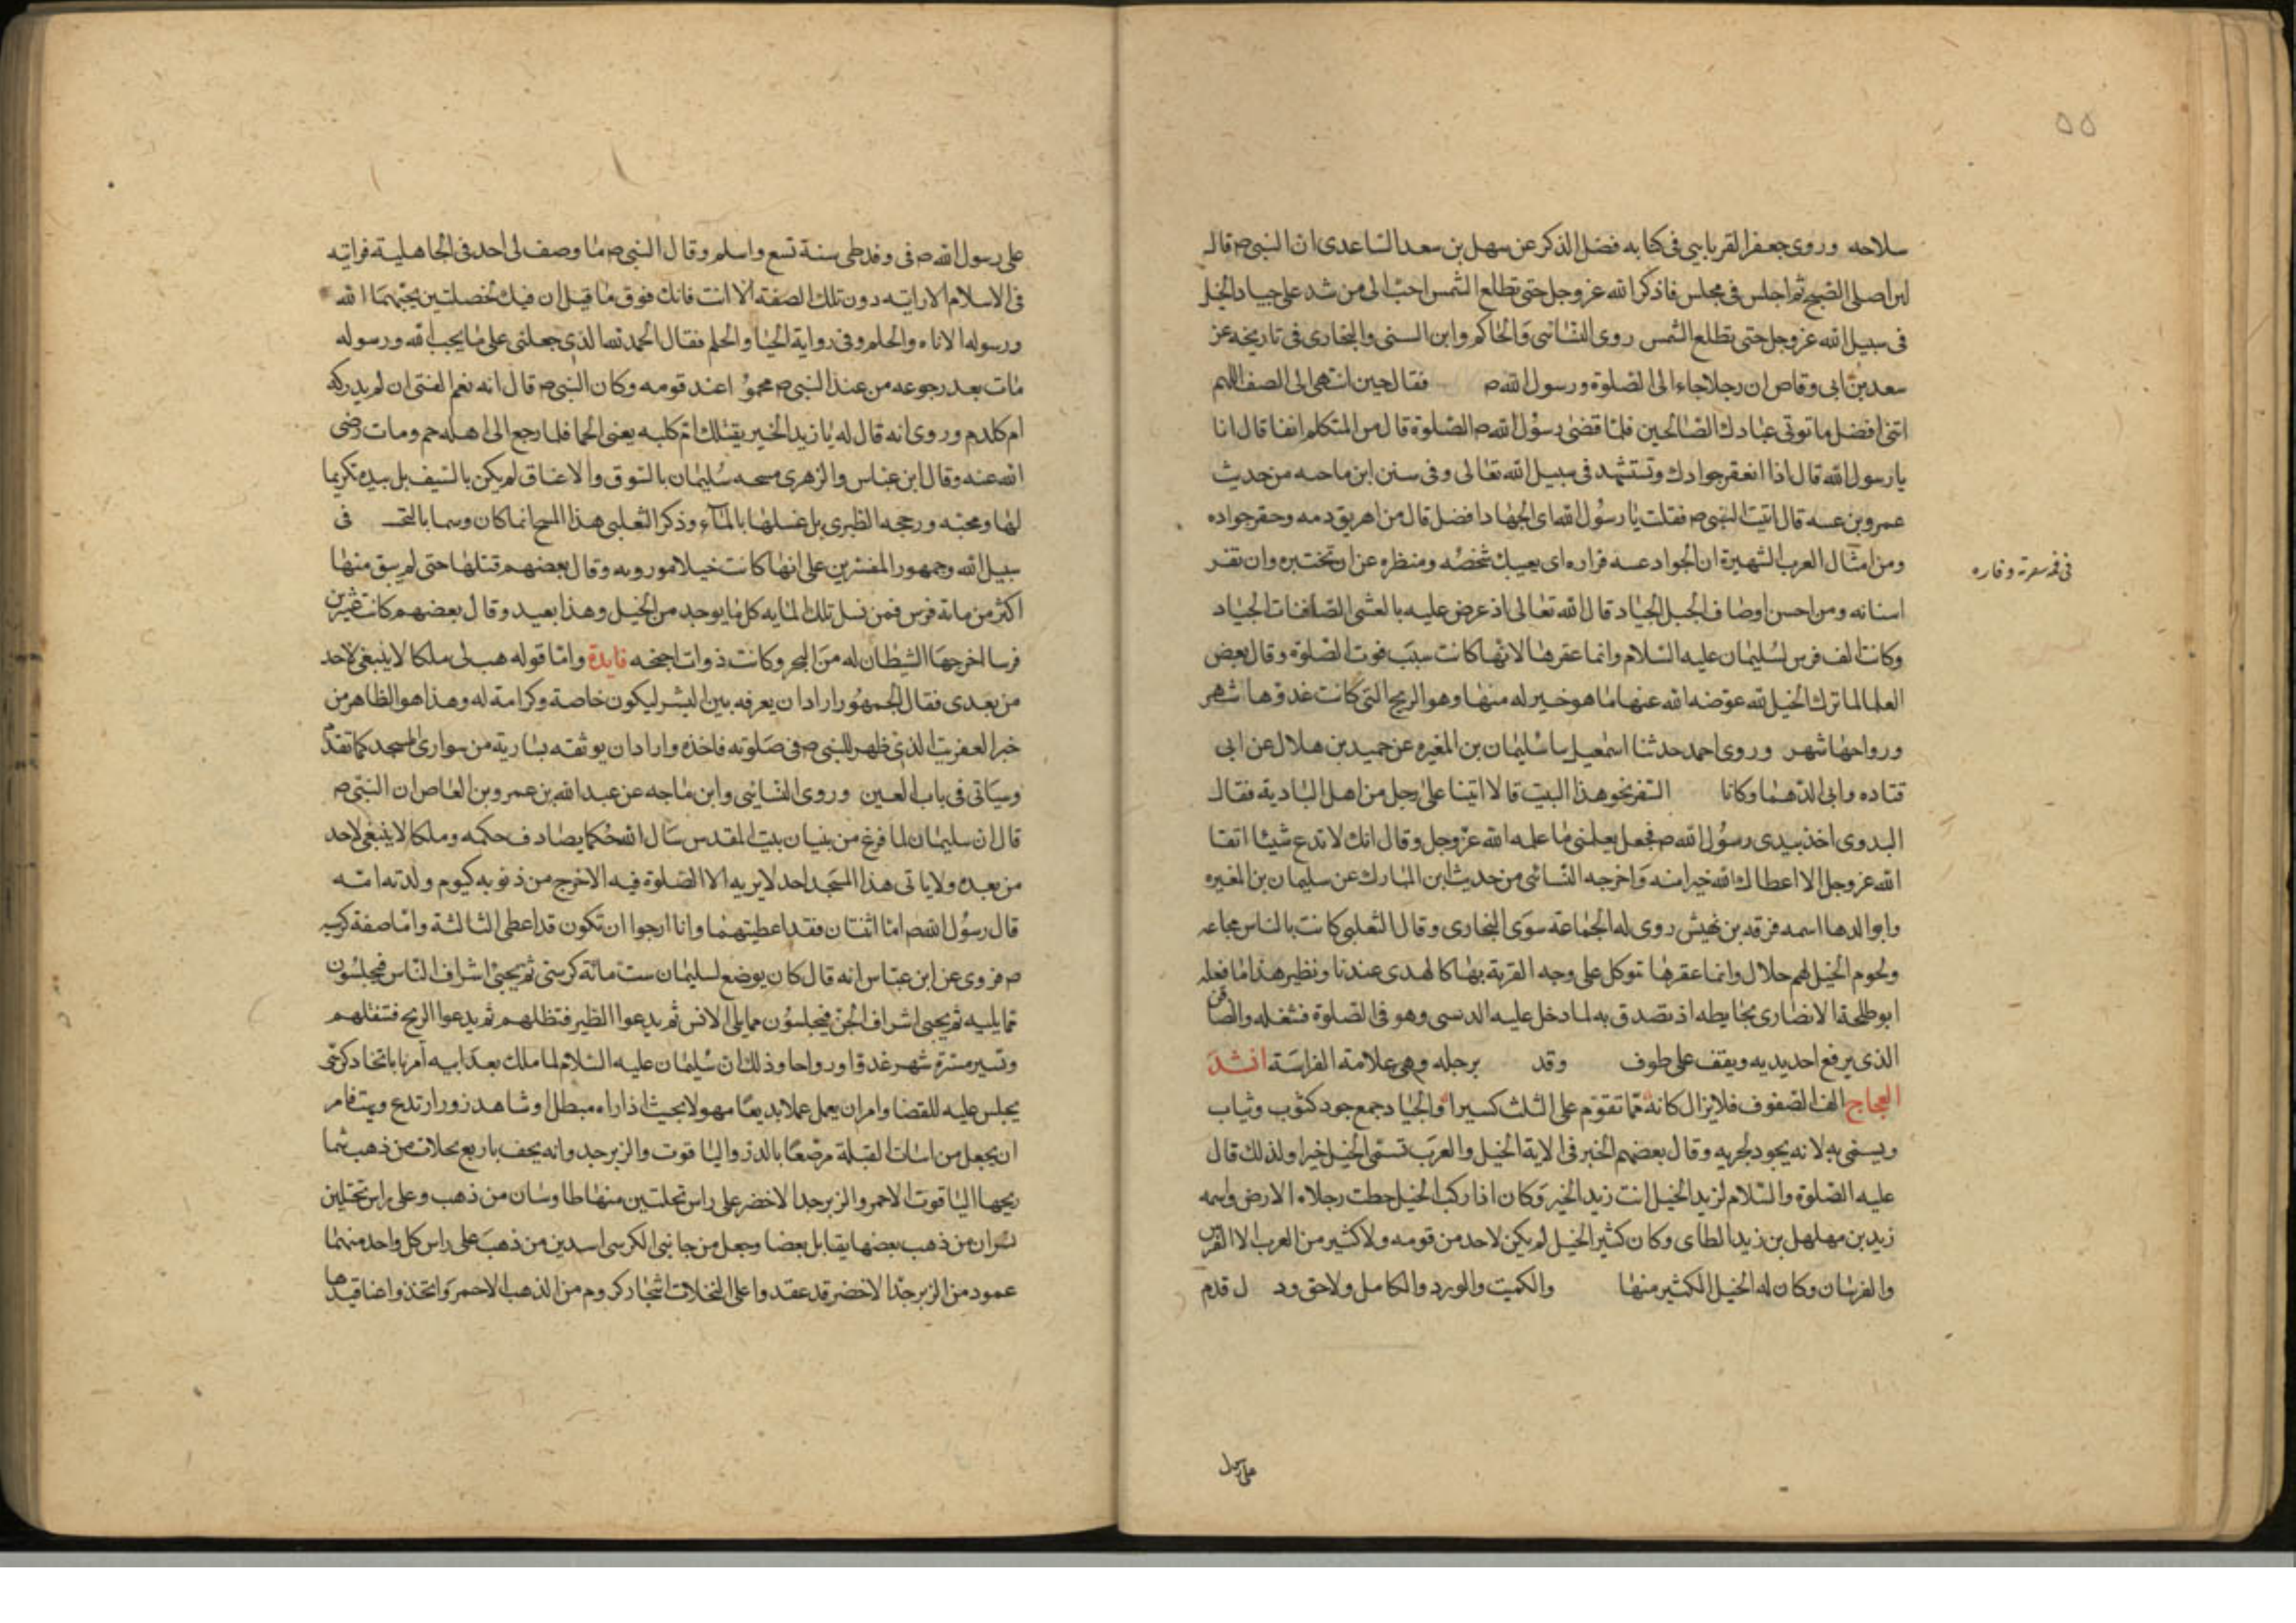 ٥٥
سلاحه وروى جعفر الفريابي في كتابه فضل الذكر عن سهل بن سعد الساعدى ان النبي ص قال
لان اصلى الصبح ثم اجلس في مجلس فاذكر الله عز وجل حتى تطلع الشمس احب الى من شد على جياد الخيل
فى سبيل الله عز وجل حتى تطلع الشمس روى النسائى والحاكم وابن السنى والبخارى فى تاريخه عن
سعد بن ابى وقاص ان رجلا جاء الى الصلوة ورسول الله ص فقال حين انتهى الى الصف اللهم
اتنى افضل ما توتى عبادك الصالحين فلما قضى رسول الله ص الصلوة قال من المتكلم انفا قال انا
يا رسول الله قال اذا انعقر جوادك وتستشهد فى سبيل الله تعالى وفى سنن ابن ماجه من حديث
عمرو بن عبسه قال اتيت النبى ص فقلت يا رسول الله اى الجهاد افضل قال من اهريق دمه وحقر جواده
ومن امثال العرب الشهيرة ان الجواد عسه فراره اى يعيبك شخصه ومنظره عن ان تختبره وان تفر
فى فمه
اسنانه ومن احسن اوصاف الجبل الجياد قال الله تعالى اذ عرض عليه بالعشى الصافنات الجياد
وكانت الف فرس لسليمان عليه السلام وانما عقرها لانها كانت سبب فوت الصلوة وقال بعض
العلما لما ترك الخيل لله عوضه الله عنها ما هو خير له منها وهو الريح التى كانت غدوها شهر
ورواحها شهر وروى احمد حدثنا اسمعيل سا سليمان بن المغيره عن حميد بن هلال عن ابى
قتاده وابى الدهما وكانا السفر نحو هذا البيت قالا اتينا على رجل من اهل البادية فقال
البدوى اخذ بيدى رسول الله ص فجعل يعلمنى ما علمه الله عز وجل وقال انك لا تدع شيئا اتقا
الله عز وجل الا اعطاك الله خيرا منه واخرجه النسائى من حديث ابن المبارك عن سليمان بن المغيره
وابو الدهما اسمه قرفه بن نهيش روى له الجماعة سوى البخارى وقال الثعلبى كانت بالناس مجاعه
ولحوم الخيل لهم حلال وانما عقرها توكل على وجه القربة بها كالهدى عندنا ونظير هذا ما فعله
ابو طلحة الانصارى بحايطه اذ تصدق به لما دخل عليه الدبسى وهو فى الصلوة فشغله والصافن
الذى يرفع احد يديه ويقف على طوف وقد برجله وهى علامة الفراسة انشد
العجاج الف الصفوف فلا يزال كانه مما تقوم على الثلث كسيرا والجياد جمع جود كثوب وثياب
ويسمى به لانه يجود بجريه وقال بعضهم الخير فى الاية الخيل والعرب تسمى الخيل خيرا ولذلك قال
عليه الصلوة والسلام لزيد الخيل انت زيد الخير وكان اذا ركب الخيل حطت رجلاه الارض واسمه
زيد بن مهلهل بن زيد الطاى وكان كثير الخيل لم يكن لاحد من قومه ولا كثير من العرب الا الفرس
والفرسان وكان له الخيل الكثير منها والكميت والورد والكامل ولاحق ود ل قدم
على رسول
على رسول الله ص فى وفد طى سنة تسع واسلم وقال النبى ص ما وصف لى احد فى الجاهلية فرايته
فى الاسلام الا رايته دون تلك الصفة الا انت فانك فوق ما قيل ان فيك لخصلتين يحبهما الله
ورسوله الاناه والحلم وفى رواية الحيا والحلم فقال الحمد لله الذى جعلنى على ما يحب الله ورسوله
مات بعد رجوعه من عند النبى ص محموما عند قومه وكان النبى ص قال انه نعم الفتى ان لم يدركه
ام كلدم وروى انه قال له يا زيد الخير يقتلك ام كلبه يعنى الحما فلما رجع الى اهله حم ومات رضى
الله عنه وقال ابن عباس والزهرى مسحه سليمان بالسوق والاعناق لم يكن بالسيف بل بيده تكريما
لها ومحبه ورجحه الطبرى بل غسلها بالماء وذكر الثعلبى هذا المسح انما كان وسما بالتحـ فى
سبيل الله وجمهور المفسرين على انها كانت خيلا موروبه وقال بعضهم قتلها حتى لم يبق منها
اكثر من مائة فرس فمن نسل تلك المايه كل ما يوجد من الخيل وهذا بعيد وقال بعضهم كانت عشرين
فرسا اخرجها الشيطان له من البحر وكانت ذوات اجنحه فايدة واما قوله هب لى ملكا لا ينبغى لاحد
من بعدى فقال الجمهور اراد ان يعرفه بين البشر ليكون خاصة وكرامة له وهذا هو الظاهر من
خبر العفريت الذى ظهر للنبى ص فى صلوته فاخذه واراد ان يوثقه بسارية من سوارى المسجد كما تقدم
وسياتى فى باب العين وروى النسائى وابن ماجه عن عبد الله بن عمرو بن العاص ان النبى ص
قال ان سليمان لما فرغ من بنيان بيت المقدس سال الله حكما يصادف حكمه وملكا لا ينبغى لاحد
من بعده ولا ياتى هذا المسجد احد لا يريد الا الصلوة فيه الا خرج من ذنوبه كيوم ولدته امه
قال رسول الله ص اما اثنتان فقد اعطيتهما وانا ارجوا ان تكون قد اعطى الثالثة واما صفة كرسيه
ص فروى عن ابن عباس انه قال كان يوضع لسليمان ست مائة كرسى ثم يجئ اشراف الناس فيجلسون
مما يليه ثم يجئ اشراف الجن فيجلسون مما يلى الانس ثم يدعوا الطير فتظلهم ثم يدعوا الريح فتقلهم
وتسير مسيرة شهر غدوا ورواحا وذلك ان سليمان عليه السلام لما ملك بعد ابيه امر باتخاد كرسى
يجلس عليه للقضا وامر ان يعمل عملا بديعا مهولا بحيث اذا راه مبطل او شاهد زور ارتدع
ان يجعل من اسات القبلة مرصعا بالدر والياقوت والزبرجد وانه يحف باربع نخلات من ذهب شما
ريخها الياقوت الاحمر والزبرجد الاخضر على راس نخلتين منها طاوسان من ذهب وعلى راس نخلتين
نسران من ذهب بعضها يقابل بعضا وجعل من جانبى الكرسى اسدين من ذهب على راس كل واحد منهما
عمود من الزبرجد الاخضر قد عقدوا على النخلات اشجار كروم من الذهب الاحمر واتخذوا عناقيدها